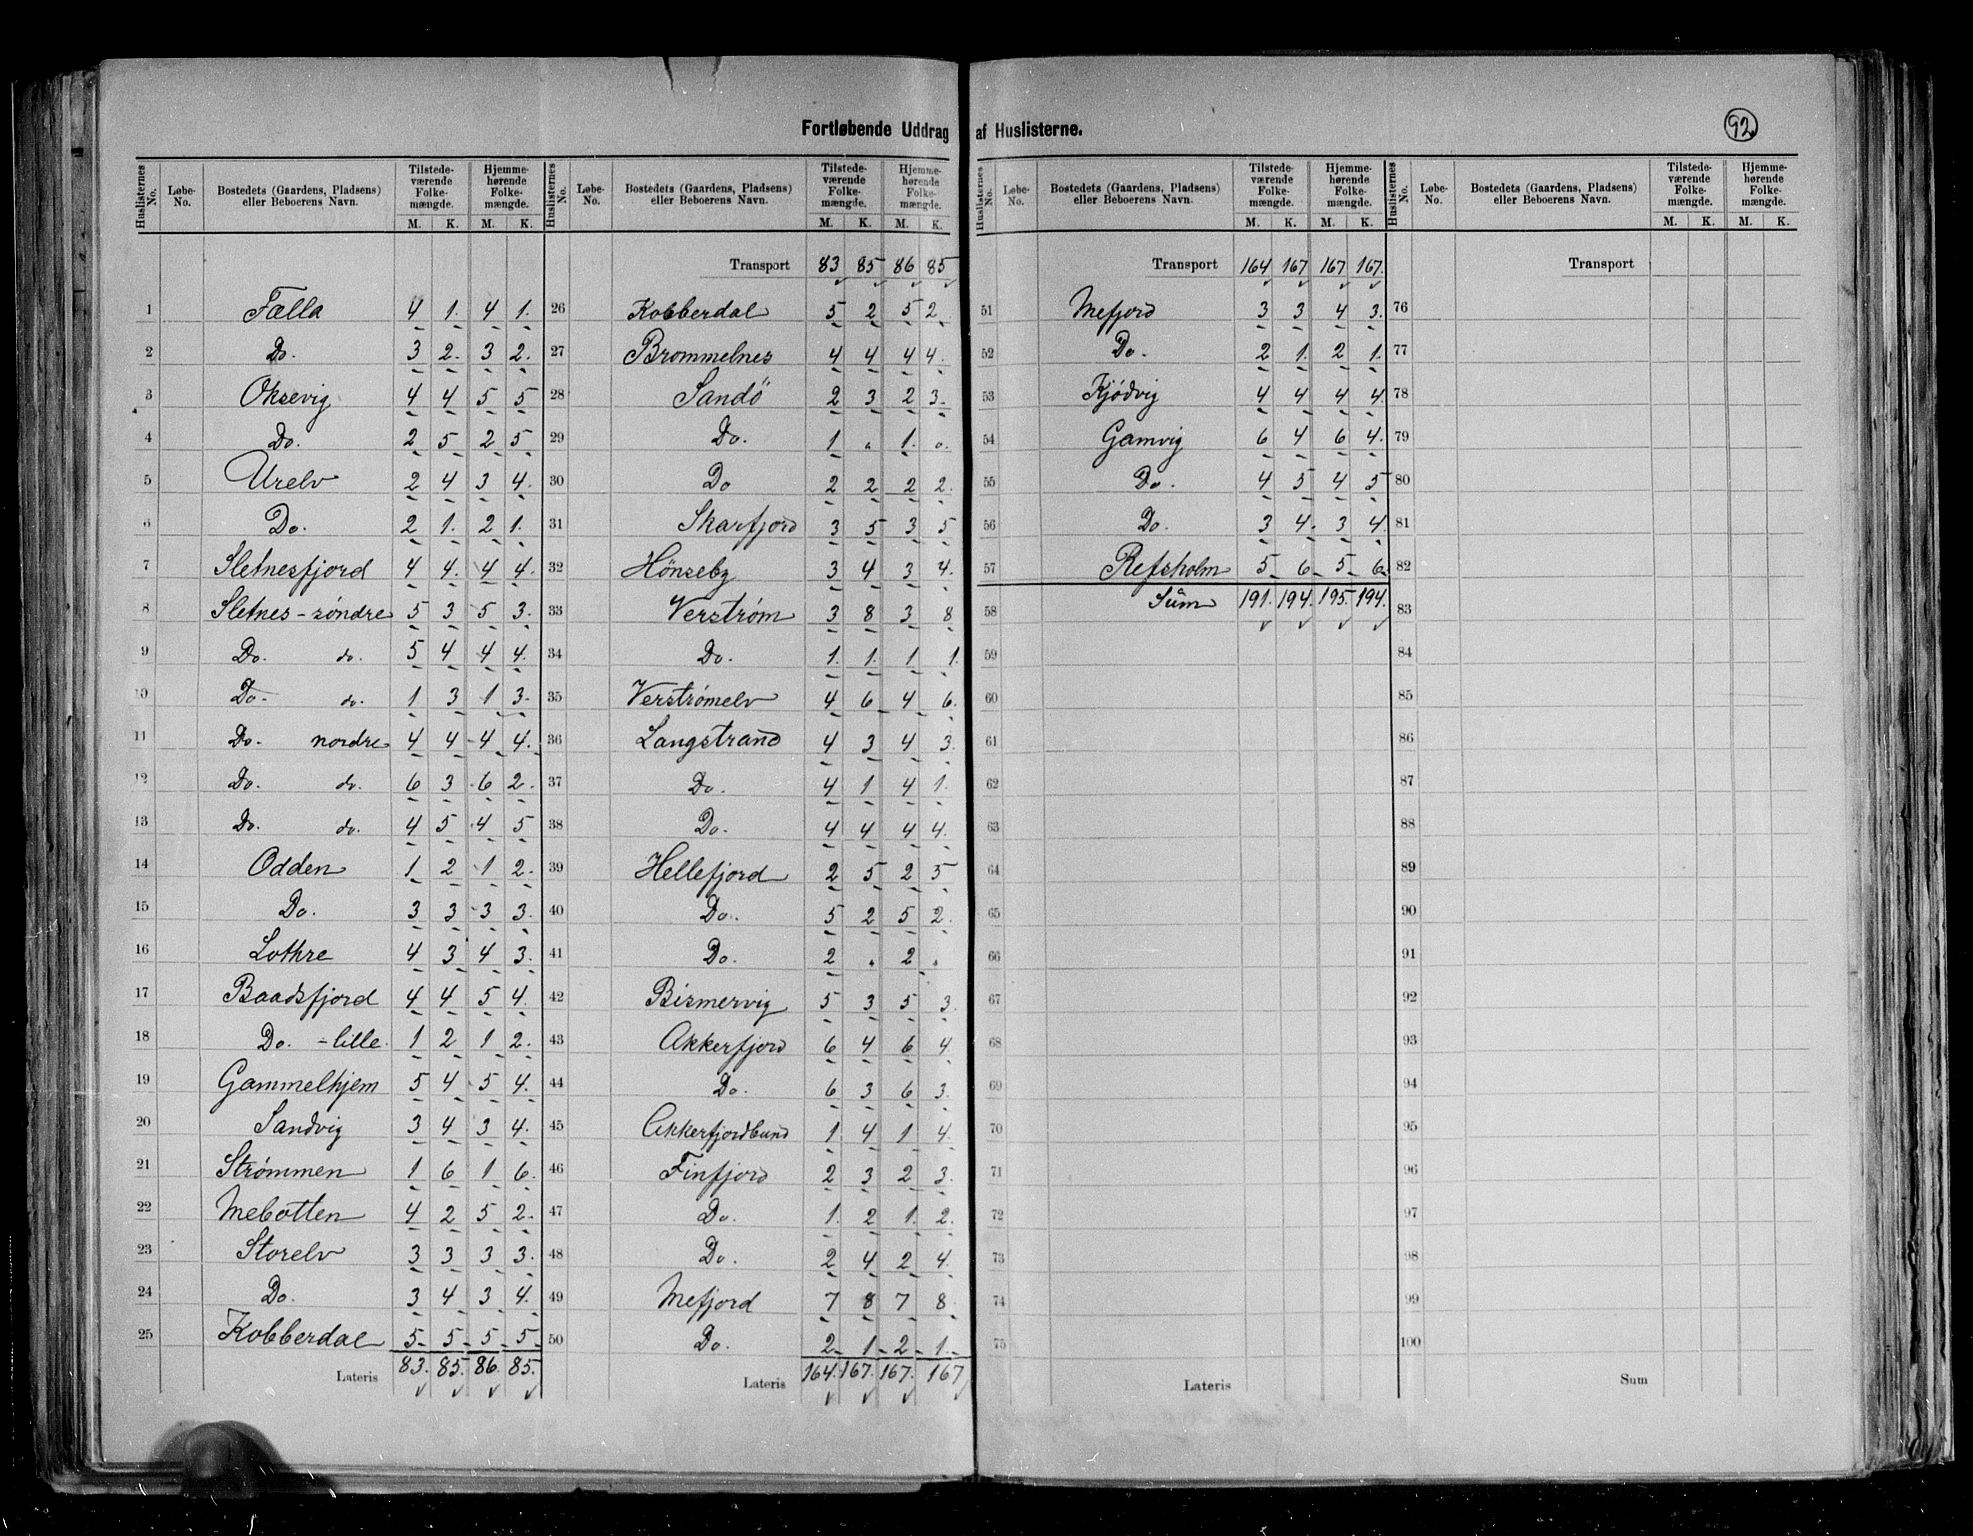 Fortløbende Uddrag af Huslisterne.
92
Huslisternes No. Løbe-No. Bostedets (Gaardens, Pladsens) eller Beboerens Navn. Tilstedeværende Folkemængde. M. K. Hjemmehørende Folkemængde. M. K.
1 Fælla 4 1. 4 1.
2 Do. 3 2. 3 2.
3 Oksevig 4 4 5 5
4 Do. 2 5 2 5
5 Urelv 2 4 3 4.
6 Do. 2 1. 2 1.
7 Sletnesfjord 4 4. 4 4.
8 Sletnes - söndre 5 3 5 3.
9 Do. do. 5 4 4 4.
10 Do. do. 1 3 1 3.
11 Do. nordre 4 4 4 4.
12 Do. do. 6 3 6 2.
13 Do. do. 4 5 4 5
14 Odden 1 2 1 2.
15 Do. 3 3 3 3.
16 Lothre 4 3 4 3.
17 Baadsfjord 4 4 5 4.
18 Do. - lille. 1 2 1 2.
19 Gammelhjem 5 4 5 4.
20 Sandvig 3 4 3 4.
21 Strømmen 1 6 1 6.
22 Mebotten 4 2 5 2.
23 Storelv 3 3 3 3.
24 Do. 3 4 3 4.
25 Kobberdal 5 5 5 5
Lateris 83. 85. 86. 85.
Huslisternes No. Løbe-No. Bostedets (Gaardens, Pladsens) eller Beboerens Navn. Tilstedeværende Folkemængde. M. K. Hjemmehørende Folkemængde. M. K.
Transport 83 85 86 85
26 Kobberdal 5 2 5 2
27 Brommelnes 4 4 4 4.
28 Sandö 2 3 2 3.
29 Do. 1 . 1. .
30 Do 2 2 2 2.
31 Skarfjord 3 5 3 5
32 Hönseby 3 4 3 4.
33 Verström 3 8 3 8
34 Do. 1. 1. 1 1.
35 Verströmelv 4 6 4 6.
36 Langstrand 4 3 4 3.
37 Do. 4 1 4 1.
38 Do. 4 4 4 4.
39 Hellefjord 2 5 2 5
40 Do. 5 2 5 2.
41 Do. 2 . 2 .
42 Bismervig 5 3 5 3.
43 Akkerfjord 6 4 6 4
44 Do. 6 3 6 3.
45 Akkerfjordbund 1 4 1 4.
46 Finfjord 2 3 2 3.
47 Do. 1. 2 1. 2.
48 Do. 2 4 2 4.
49 Mefjord 7 8 7 8.
50 Do. 2 1 2 1.
Lateris 164. 167. 167. 167
Huslisternes No. Løbe-No. Bostedets (Gaardens, Pladsens) eller Beboerens Navn. Tilstedeværende Folkemængde. M. K. Hjemmehørende Folkemængde. M. K.
Transport 164 167 167 167.
51 Mefjord 3 3 4 3.
52 Do. 2 1. 2 1.
53 Kjödvig 4 4 4 4.
54 Gamvig 6 4 6 4.
55 Do. 4 5 4 5
56 Do. 3 4. 3 4.
57 Refsholm 5 6 5 6
58 Sum 191. 194. 195. 194.
59
60
61
62
63
64
65
66
67
68
69
70
71
72
73
74
75
Lateris
Huslisternes No. Løbe-No. Bostedets (Gaardens, Pladsens) eller Beboerens Navn. Tilstedeværende Folkemængde. M. K. Hjemmehørende Folkemængde. M. K.
Transport
76
77
78
79
80
81
82
83
84
85
86
87
88
89
90
91
92
93
94
95
96
97
98
99
100
Sum